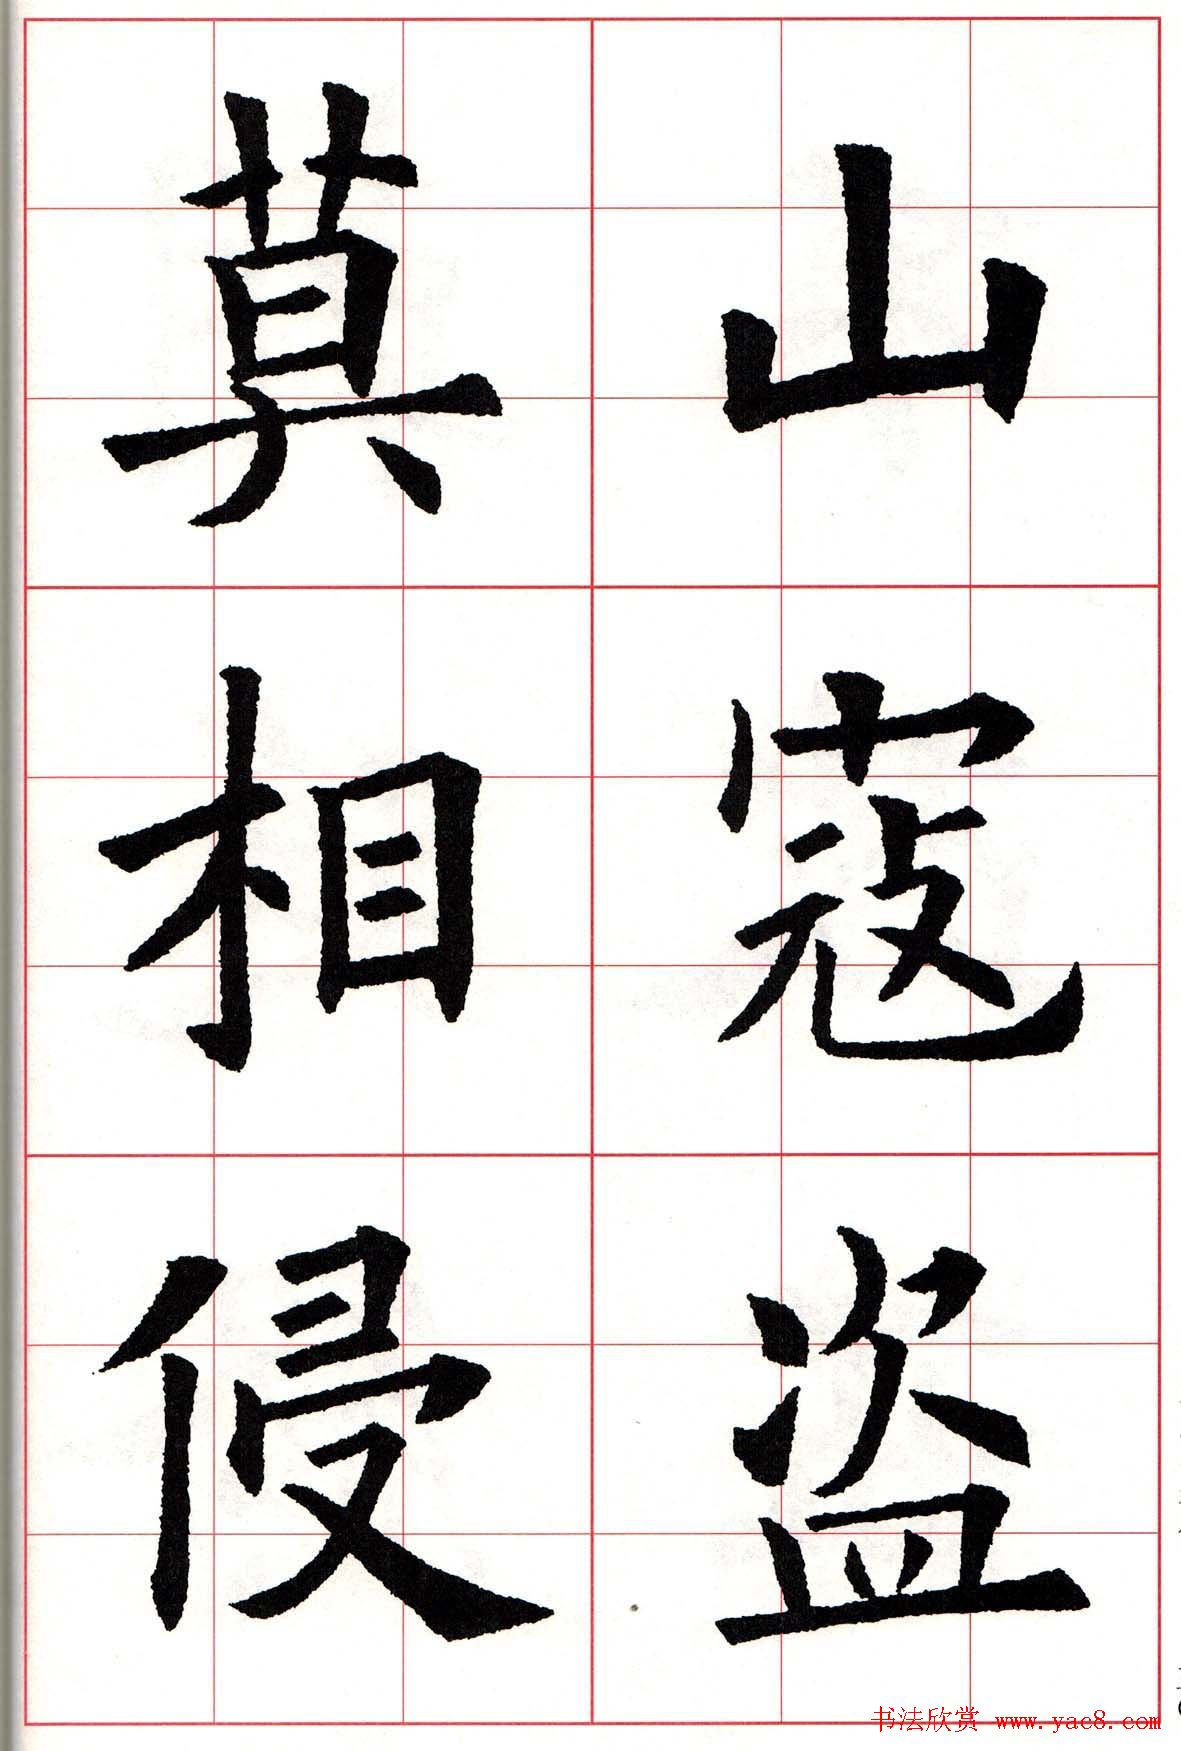 山寇盗
莫相侵
书法欣赏 www.yac8.com